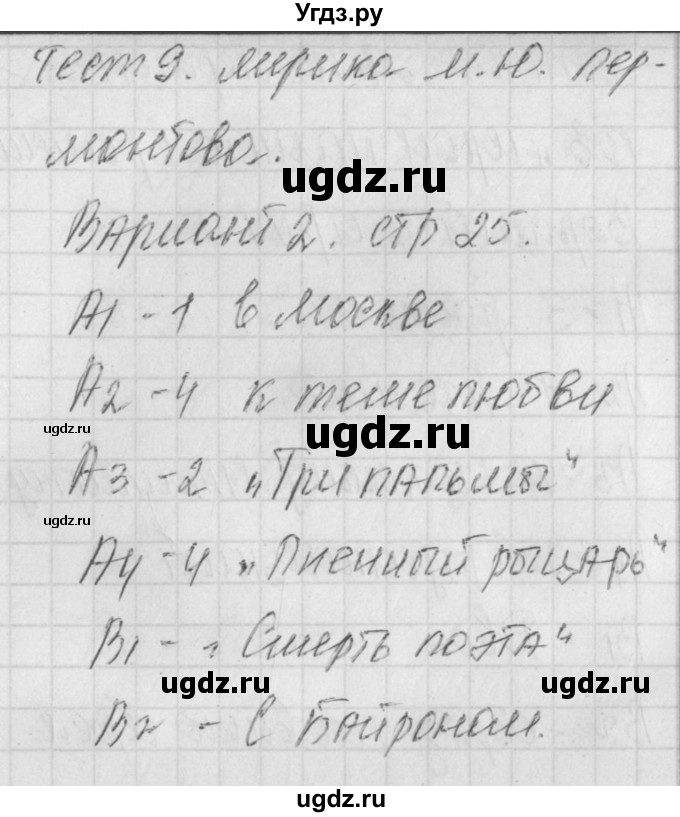 Угдз.ру
Тест 9. Лирика М.Ю. Лер-
монтова.
ugdz.ru
Вариант 2. стр 25.
А1 - 1 в Москве
А2 - 4 к теме любви
ugdz.ru
ugdz.ru
А3 - 2 "Три пальмы"
ugdz.ru
А4 - 4 "Пленный рыцарь"
В1 - "Смерть поэта"
ugdz.ru
ugdz.ru
В2 - С Байроном.
ugdz.ru